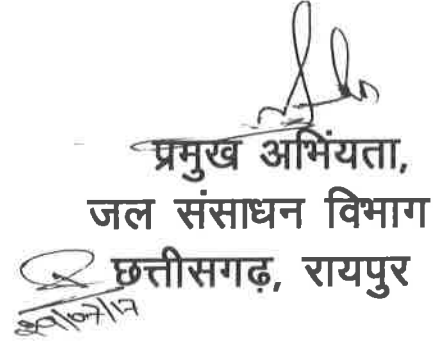 प्रमुख अभिंयता,
जल संसाधन विभाग
छत्तीसगढ़, रायपुर